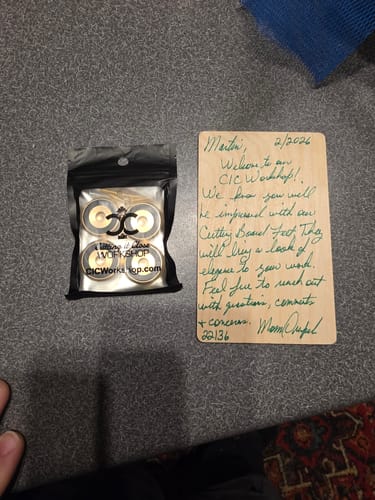 CIC
Cutting it Close
WORKSHOP
CICWorkshop.com
Martin, 2/2026
Welcome to our
CIC Workshop!.
We know you will
be impressed with our
Cutting Board Feet. They
will bring a look of
elegance to your work.
Feel free to reach out
with questions, comments
+ concerns.
22136